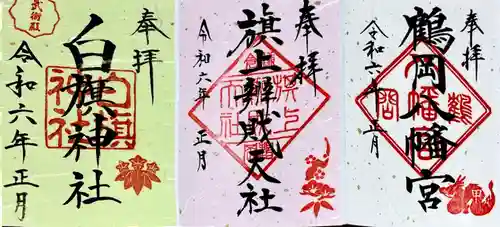 奉拝
白旗神社
令和六年正月
武衛殿
白旗神社
奉拝
旗上辨財天社
令和六年
正月
旗上
奉拝
鶴岡八幡宮
令和六年
正月